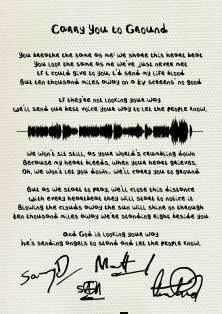 Carry You to Ground
You breathe the same as me; we share this heart beat
You look the same as me we've just never met
If I could give to you, I'd send my life blood
But ten thousand miles away on a tv screens no good
If they're not looking your way
We'll send our best voice your way to let the people know,
We won't sit still, as your world's crumbling down
Because my heart bleeds, when your heart grieves,
Oh, we won't let you down, we'll carry you to ground
But as we start to pray, we'll close this distance
With every heartbeat they will start to notice is
Blowing the clouds away the sun will shine on through
Ten thousand miles away we're standing right beside you
And God is looking your way
he's sending angels to stand and let the people know,